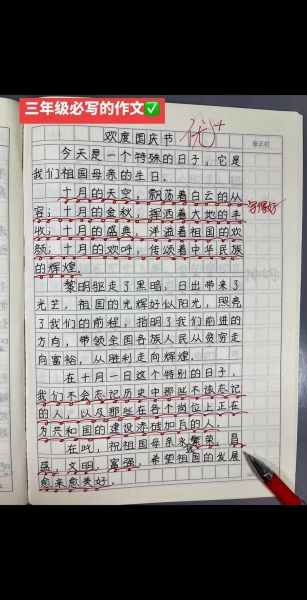 三年级必写的作文✅
欢度国庆节
优+
修正栏
今天是一个特殊的日子，它是
我们祖国母亲的生日。
十月的天空，飘荡着白云的从
容；十月的金秋，挥洒着大地的丰
写得好
收；十月的盛典，洋溢着祖国的欢
颜；十月的欢呼，传颂着中华民族
的辉煌。
黎明驱走了黑暗，日出带来了
光芒，祖国的光辉好似阳光，照亮
了我们的前程，指明了我们前进的
方向，带领全国各族人民从贫穷走
向富裕，从胜利走向辉煌。
在十月一日这个特别的日子，
我们不会忘记历史中那些不该忘记
的人，以及那些在各个岗位上正在
为共和国的建设添砖加瓦的人。
在此，祝祖国母亲永繁荣，昌
盛，文明，富强，希望祖国的发展
愈来愈美好。